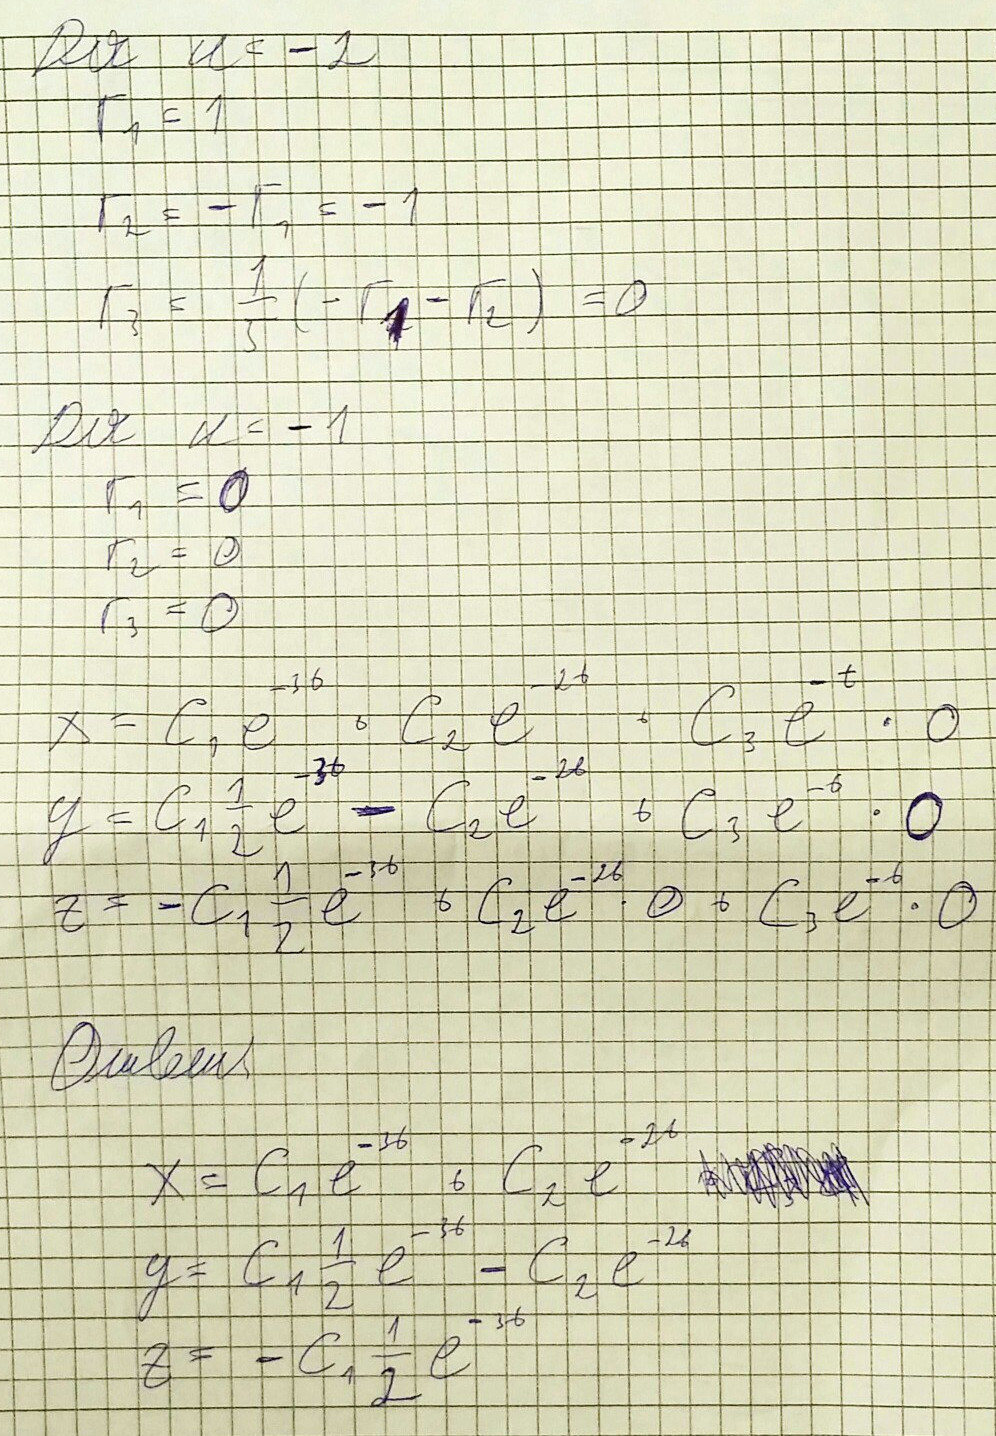 Для k = -2
r₁ = 1
r₂ = -r₁ = -1
r₃ = 1/3 (-r₁ - r₂) = 0
Для k = -1
r₁ = 0
r₂ = 0
r₃ = 0
x = C₁e^(-3t) + C₂e^(-2t) + C₃e^(-t) · 0
y = C₁ 1/2 e^(-3t) - C₂e^(-2t) + C₃e^(-t) · 0
z = -C₁ 1/2 e^(-3t) + C₂e^(-2t) · 0 + C₃e^(-t) · 0
Ответ
x = C₁e^(-3t) + C₂e^(-2t)
y = C₁ 1/2 e^(-3t) - C₂e^(-2t)
z = -C₁ 1/2 e^(-3t)